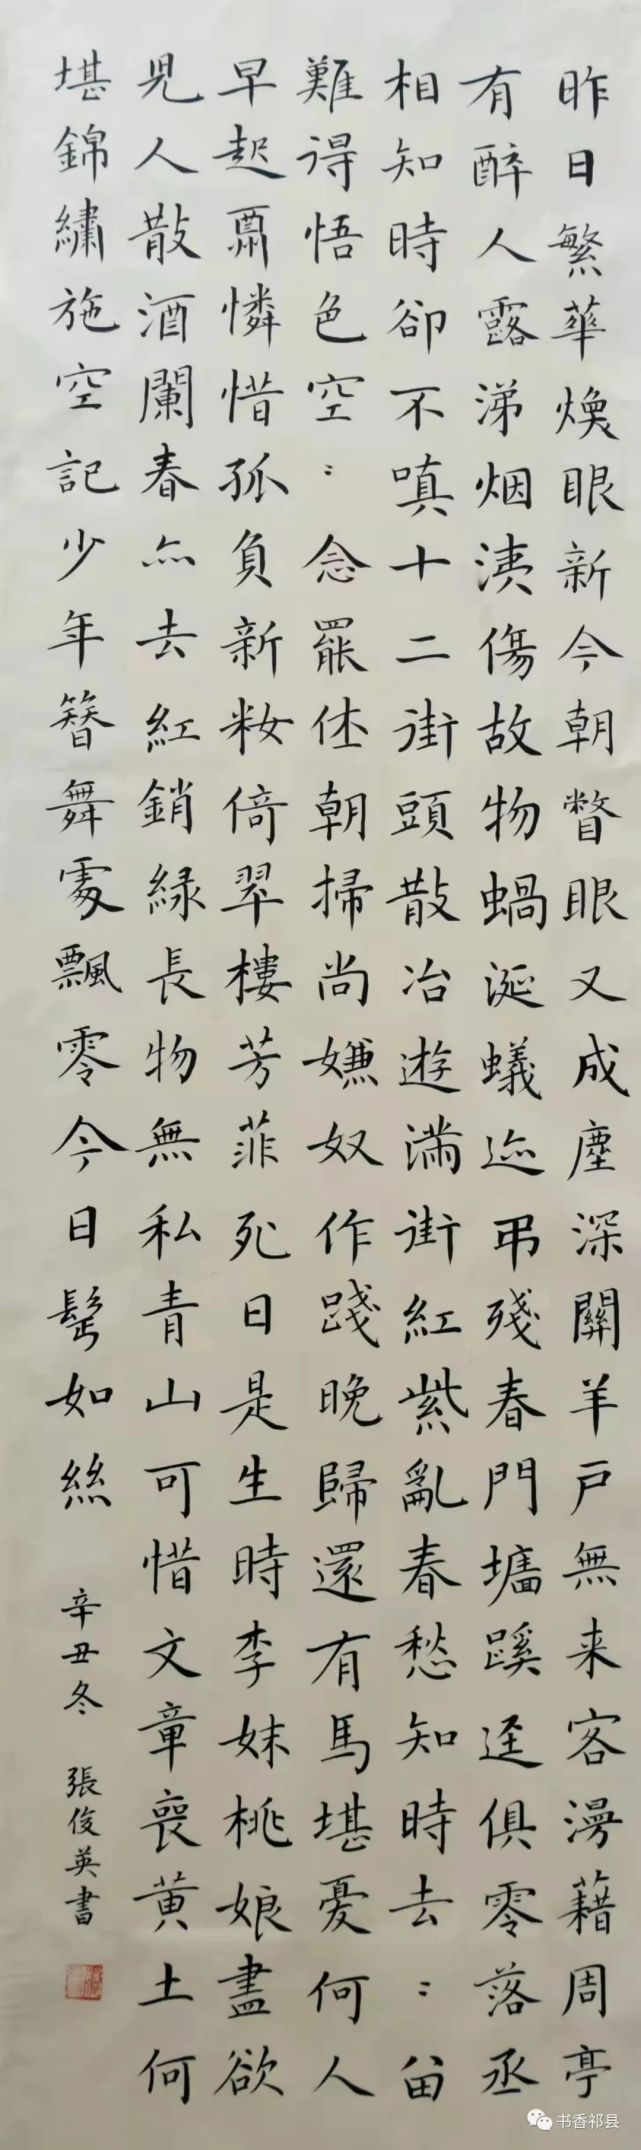 昨日繁華煥眼新今朝瞥眼又成塵深關羊戶無来客漫藉周亭
有醉人露涕烟洟傷故物蝸涎蟻迹弔殘春門墻蹊逕俱零落丞
相知時卻不嗔十二街頭散冶遊滿街紅紫亂春愁知時去〻留
難得悟色空〻念罷休朝掃尚嫌奴作踐晚歸還有馬堪憂何人
早起憐惜孤負新妝倚翠樓芳菲死日是生時李妹桃娘盡欲
児人散酒闌春亦去紅銷緑長物無私青山可惜文章喪黄土何
堪錦繡施空記少年簪舞處飄零今日鬂如絲
辛丑冬 張俊英書
书香祁县